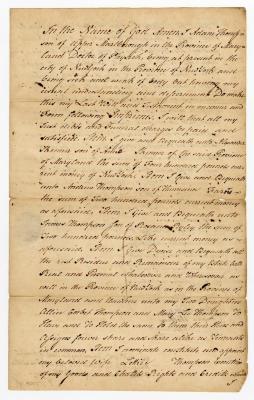 In the Name of God Amen I Adam Thomp
son of Upper Marlborough in the Province of Mary
land Doctor of Physick being at present in the
City of New York in the Province of New York and
being sick and weak of Body but having my
usual understanding and discernment Do make
this my Last Will and Testament in manner and
Form following Imprimis I will that all my
Just debts and Funeral charges be paid and
satisfied Item I give and Bequeath unto Alexander
son of in the Province
of Maryland the sum of Two hundred pounds cur
rent money of New York Item I Give and Bequeath
unto Andrew Thompson Son of
the sum of Two hundred pounds current money
as aforesaid Item I Give and Bequeath unto
Thompson Son of the sum of
Two hundred pounds like current money as
aforesaid Item I Give Devise and Bequeath all
the rest Residue and Remainder of my Estate both
Real and Personal whatsoever and Wheresoever as
well in the Province of New York as in the Province of
Maryland and elsewhere unto my Two Daughters
Thompson and Mary Thompson To
Have and To Hold the same To them their Heirs and
Assigns for ever share and share alike as Tenants
in common Item I nominate constitute and appoint
my beloved Wife Lettice Thompson
of my Goods and Chattels Rights and Credits